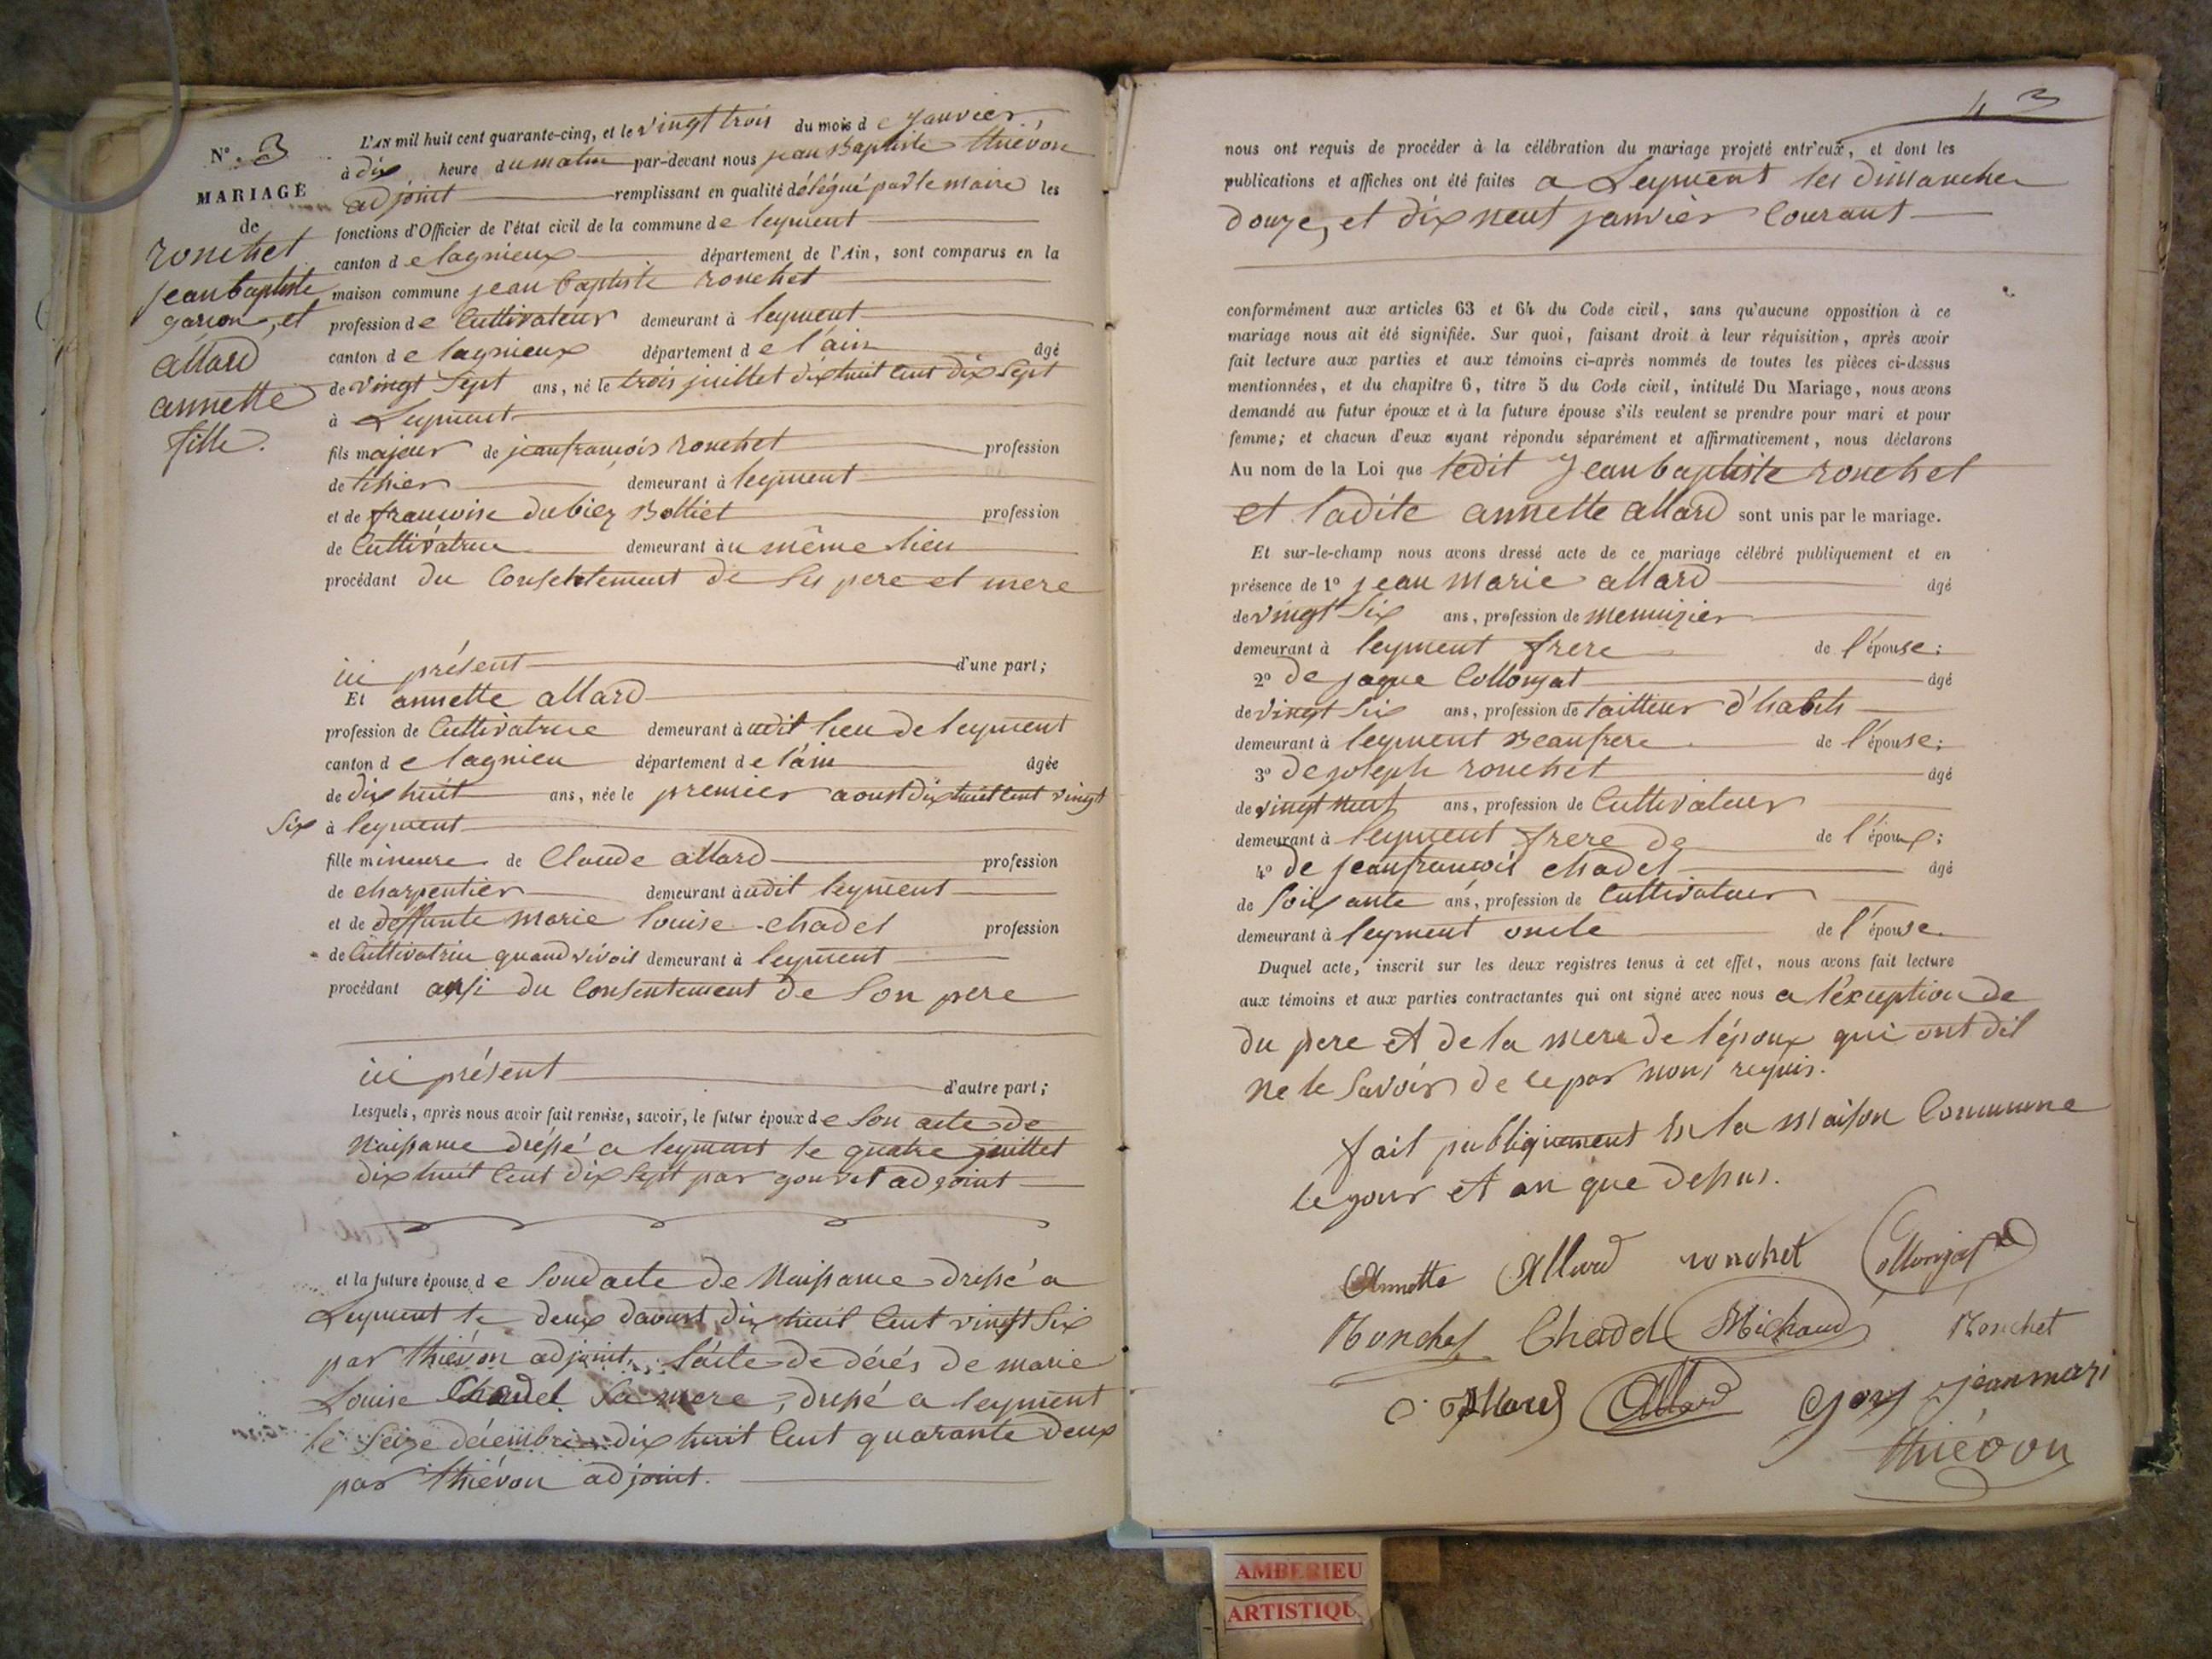 N° 3
MARIAGE
de
ronchet
jean baptiste
garcon, et
allard
annette
fille.
L'AN mil huit cent quarante-cinq, et le vingt trois du mois de janvier,
à dix heure du matin par-devant nous jean Baptiste thiévon
adjoint remplissant en qualité délégué par le maire les
fonctions d'Officier de l'état civil de la commune de leyment
canton de lagnieux département de l'Ain, sont comparus en la
maison commune jean baptiste ronchet
profession de Cultivateur demeurant à leyment
canton de lagnieux département de l'ain âgé
de vingt sept ans, né le trois juillet dix huit cent dix sept
à Leyment
fils majeur de jean françois ronchet profession
de tisier demeurant à leyment
et de françoise dubiez Bolliet profession
de Cultivatrice demeurant au même lieu
procédant du Consentement de ses pere et mere
ici présent d'une part;
Et annette allard
profession de Cultivatrice demeurant à udit lieu de leyment
canton de lagnieu département de l'ain âgée
de dix huit ans, née le premier aoust dix huit cent vingt
six à leyment
fille mineure de Claude allard profession
de charpentier demeurant à udit leyment
et de deffunte marie louise chadel profession
de Cultivatrice quand vivoit demeurant à leyment
procédant ausi du Consentement de Son pere
ici présent d'autre part;
Lesquels, après nous avoir fait remise, savoir, le futur époux de Son acte de
Naissance dréssé a leyment le quatre juillet
dix huit Cent dix Sept par gouvet adjoint
et la future épouse, de Sondacte de Naissance dressé a
Leyment le deux daoust dix huit Cent vingt Six
par thiévon adjoint, l'acte de décés de marie
Louise Chadel Sa mere, dressé a leyment
le seize décembre dix huit Cent quarante deux
par thiévon adjoint.
43
nous ont requis de procéder à la célébration du mariage projeté entr'eux, et dont les
publications et affiches ont été faites a Leyment les dimanches
douze, et dix neuf janvier Courant
conformément aux articles 63 et 64 du Code civil, sans qu'aucune opposition à ce
mariage nous ait été signifiée. Sur quoi, faisant droit à leur réquisition, après avoir
fait lecture aux parties et aux témoins ci-après nommés de toutes les pièces ci-dessus
mentionnées, et du chapitre 6, titre 5 du Code civil, intitulé Du Mariage, nous avons
demandé au futur époux et à la future épouse s'ils veulent se prendre pour mari et pour
femme; et chacun d'eux ayant répondu séparément et affirmativement, nous déclarons
Au nom de la Loi que ledit Jean baptiste ronchet
et ladite annette allard sont unis par le mariage.
Et sur-le-champ nous avons dressé acte de ce mariage célébré publiquement et en
présence de 1° jean Marie allard âgé
de vingt Six ans, profession de menuizier
demeurant à leyment frere de l'épouse;
2° de jaque Collonjat âgé
de vingt Six ans, profession de tailleur d'habits
demeurant à leyment Beaufrere de l'épouse;
3° de joseph ronchet âgé
de vingt neuf ans, profession de Cultivateur
demeurant à leyment frere de de l'époux;
4° de jean françois chadel âgé
de Soixante ans, profession de Cultivateur
demeurant à leyment oncle de l'épouse
Duquel acte, inscrit sur les deux registres tenus à cet effet, nous avons fait lecture
aux témoins et aux parties contractantes qui ont signé avec nous a l'éxception de
du pere et de la mere de l'époux qui ont dit
ne le Savoir de ce par nous requis.
fait publiquement En la maison Commune
le jour et an que dessus.
Annette Allard ronchet Collonjat
Ronchet Chadel Michaud Ronchet
C. Allard Allard Gory jeanmari
thiévon
AMBERIEU
ARTISTIQU